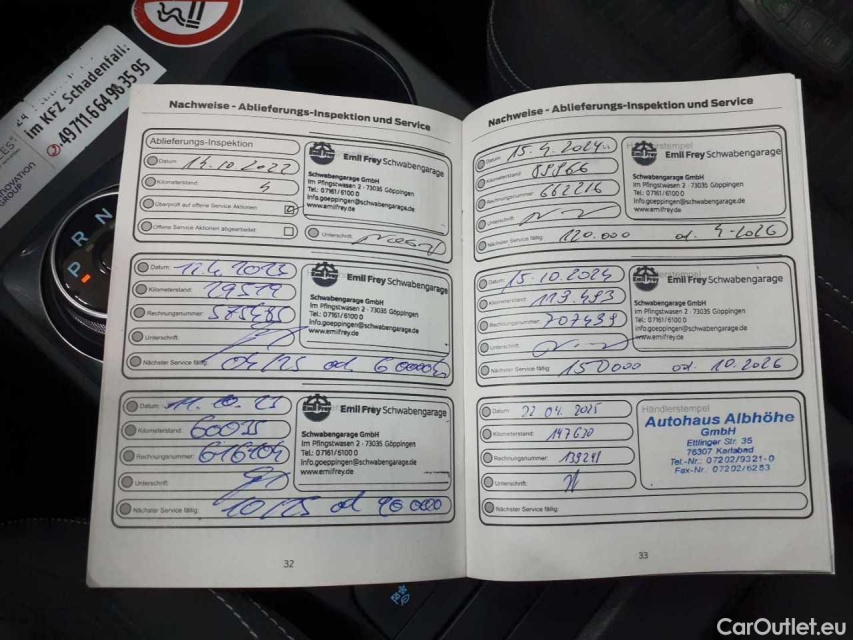 im KFZ Schadenfall:
NOVATION
GROUP
R N
P
Nachweise - Ablieferungs-Inspektion und Service
Ablieferungs-Inspektion
Datum: 14.10.2022
Kilometerstand: 4
Überprüft auf offene Service Aktionen
Offene Service Aktionen abgearbeitet
Unterschrift:
Emil Frey Schwabengarage
Schwabengarage GmbH
Im Pfingstwasen 2 · 73035 Göppingen
Tel.: 07161/6100 0
info.goeppingen@schwabengarage.de
www.emilfrey.de
Datum:
Kilometerstand: 29514
Rechnungsnummer:
Unterschrift:
Nächster Service fällig: 04/25 od 60000
Emil Frey Schwabengarage
Schwabengarage GmbH
Im Pfingstwasen 2 · 73035 Göppingen
Tel.: 07161/6100 0
info.goeppingen@schwabengarage.de
www.emilfrey.de
Datum: 11.10.23
Kilometerstand:
Rechnungsnummer: 616104
Unterschrift:
Nächster Service fällig: 10/25 od 90000
Emil Frey Schwabengarage
Schwabengarage GmbH
Im Pfingstwasen 2 · 73035 Göppingen
Tel.: 07161/6100 0
info.goeppingen@schwabengarage.de
www.emilfrey.de
32
Nachweise - Ablieferungs-Inspektion und Service
Datum: 15.4.2024
Kilometerstand:
Rechnungsnummer: 662216
Unterschrift:
Nächster Service fällig: 120.000 od. 4-2026
Händlerstempel
Emil Frey Schwabengarage
Schwabengarage GmbH
Im Pfingstwasen 2 · 73035 Göppingen
Tel.: 07161/6100 0
info.goeppingen@schwabengarage.de
www.emilfrey.de
Datum: 15.10.2024
Kilometerstand: 113.493
Rechnungsnummer: 707439
Unterschrift:
Nächster Service fällig: 150000 od. 10.2026
Händlerstempel
Emil Frey Schwabengarage
Schwabengarage GmbH
Im Pfingstwasen 2 · 73035 Göppingen
Tel.: 07161/6100 0
info.goeppingen@schwabengarage.de
www.emilfrey.de
Datum: 22 04. 2025
Kilometerstand: 147630
Rechnungsnummer: 139241
Unterschrift:
Nächster Service fällig:
Händlerstempel
Autohaus Albhöhe
GmbH
Ettlinger Str. 35
76307 Karlsbad
Tel.-Nr.: 07202/9321-0
Fax-Nr. 07202/6283
33
CarOutlet.eu